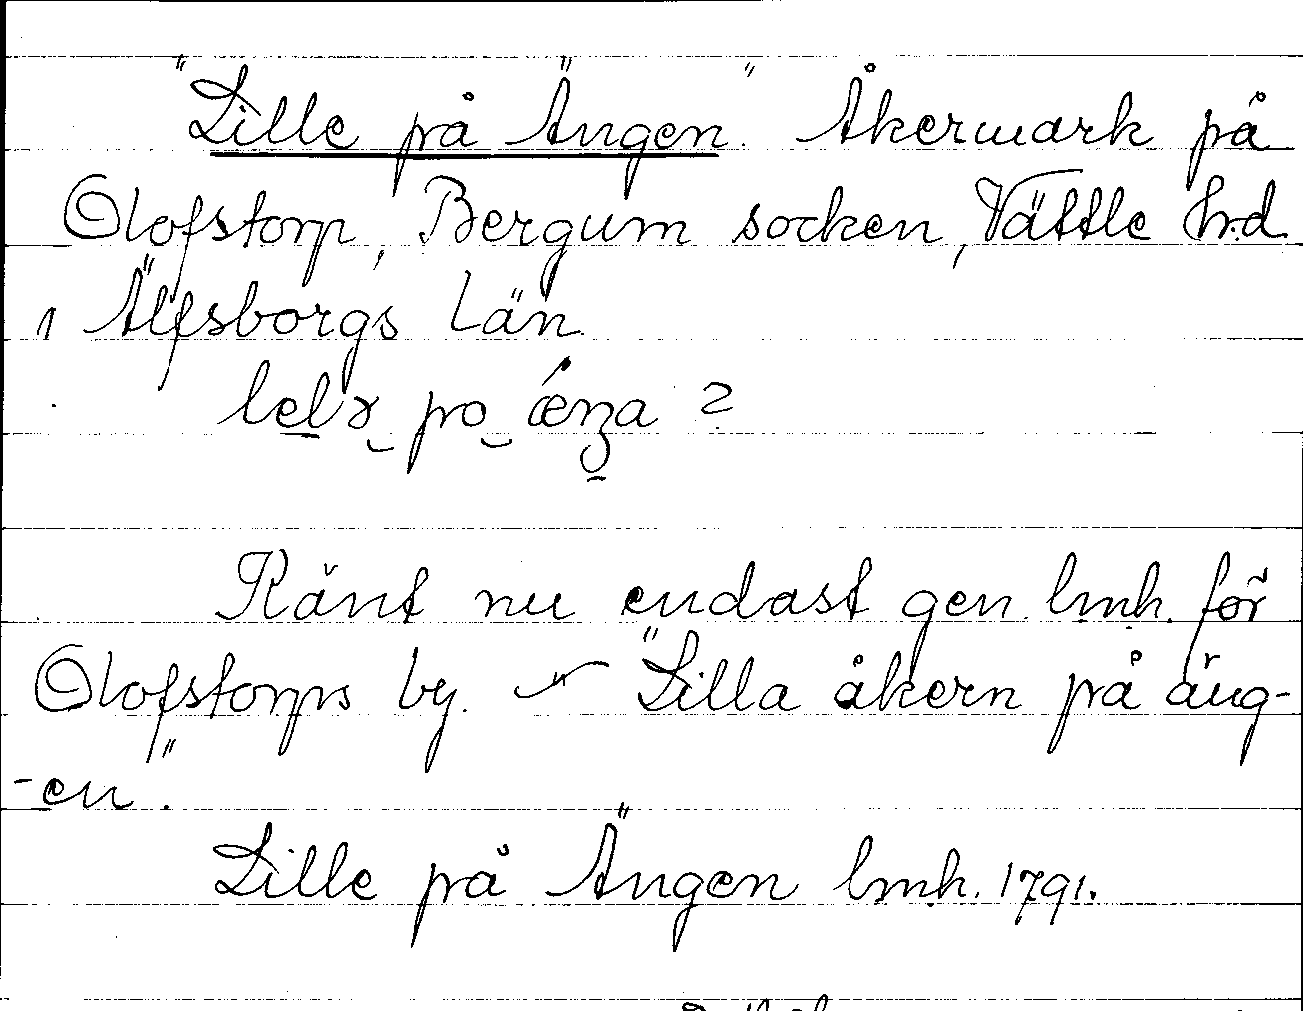 "Lille på Ängen." Åkermark på
Olofstorp, Bergum socken, Vättle hrd
i Älfsborgs Län.
lelɤ po ænza ?
Känt nu endast gen. lmh. för
Olofstorps by. ~ "Lilla åkern på äng-
-en".
Lille på Ängen lmh. 1791.